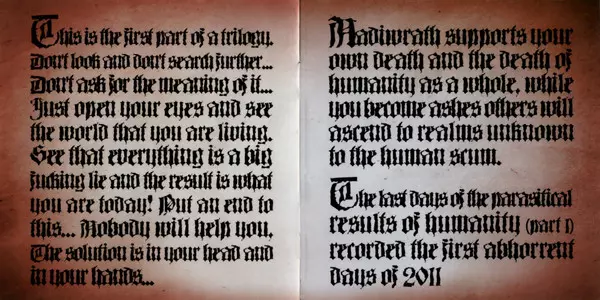 This is the first part of a trilogy.
Don't look and don't search further...
Don't ask for the meaning of it...
Just open your eyes and see
the world that you are living.
See that everything is a big
fucking lie and the result is what
you are today! Put an end to
this... Nobody will help you,
The solution is in your head and
in your hands...
Madiwrath supports your
own death and the death of
humanity as a whole, while
you become ashes others will
ascend to realms unknown
to the human scum.
The last days of the parasitical
results of humanity (part I)
recorded the first abhorrent
days of 2011